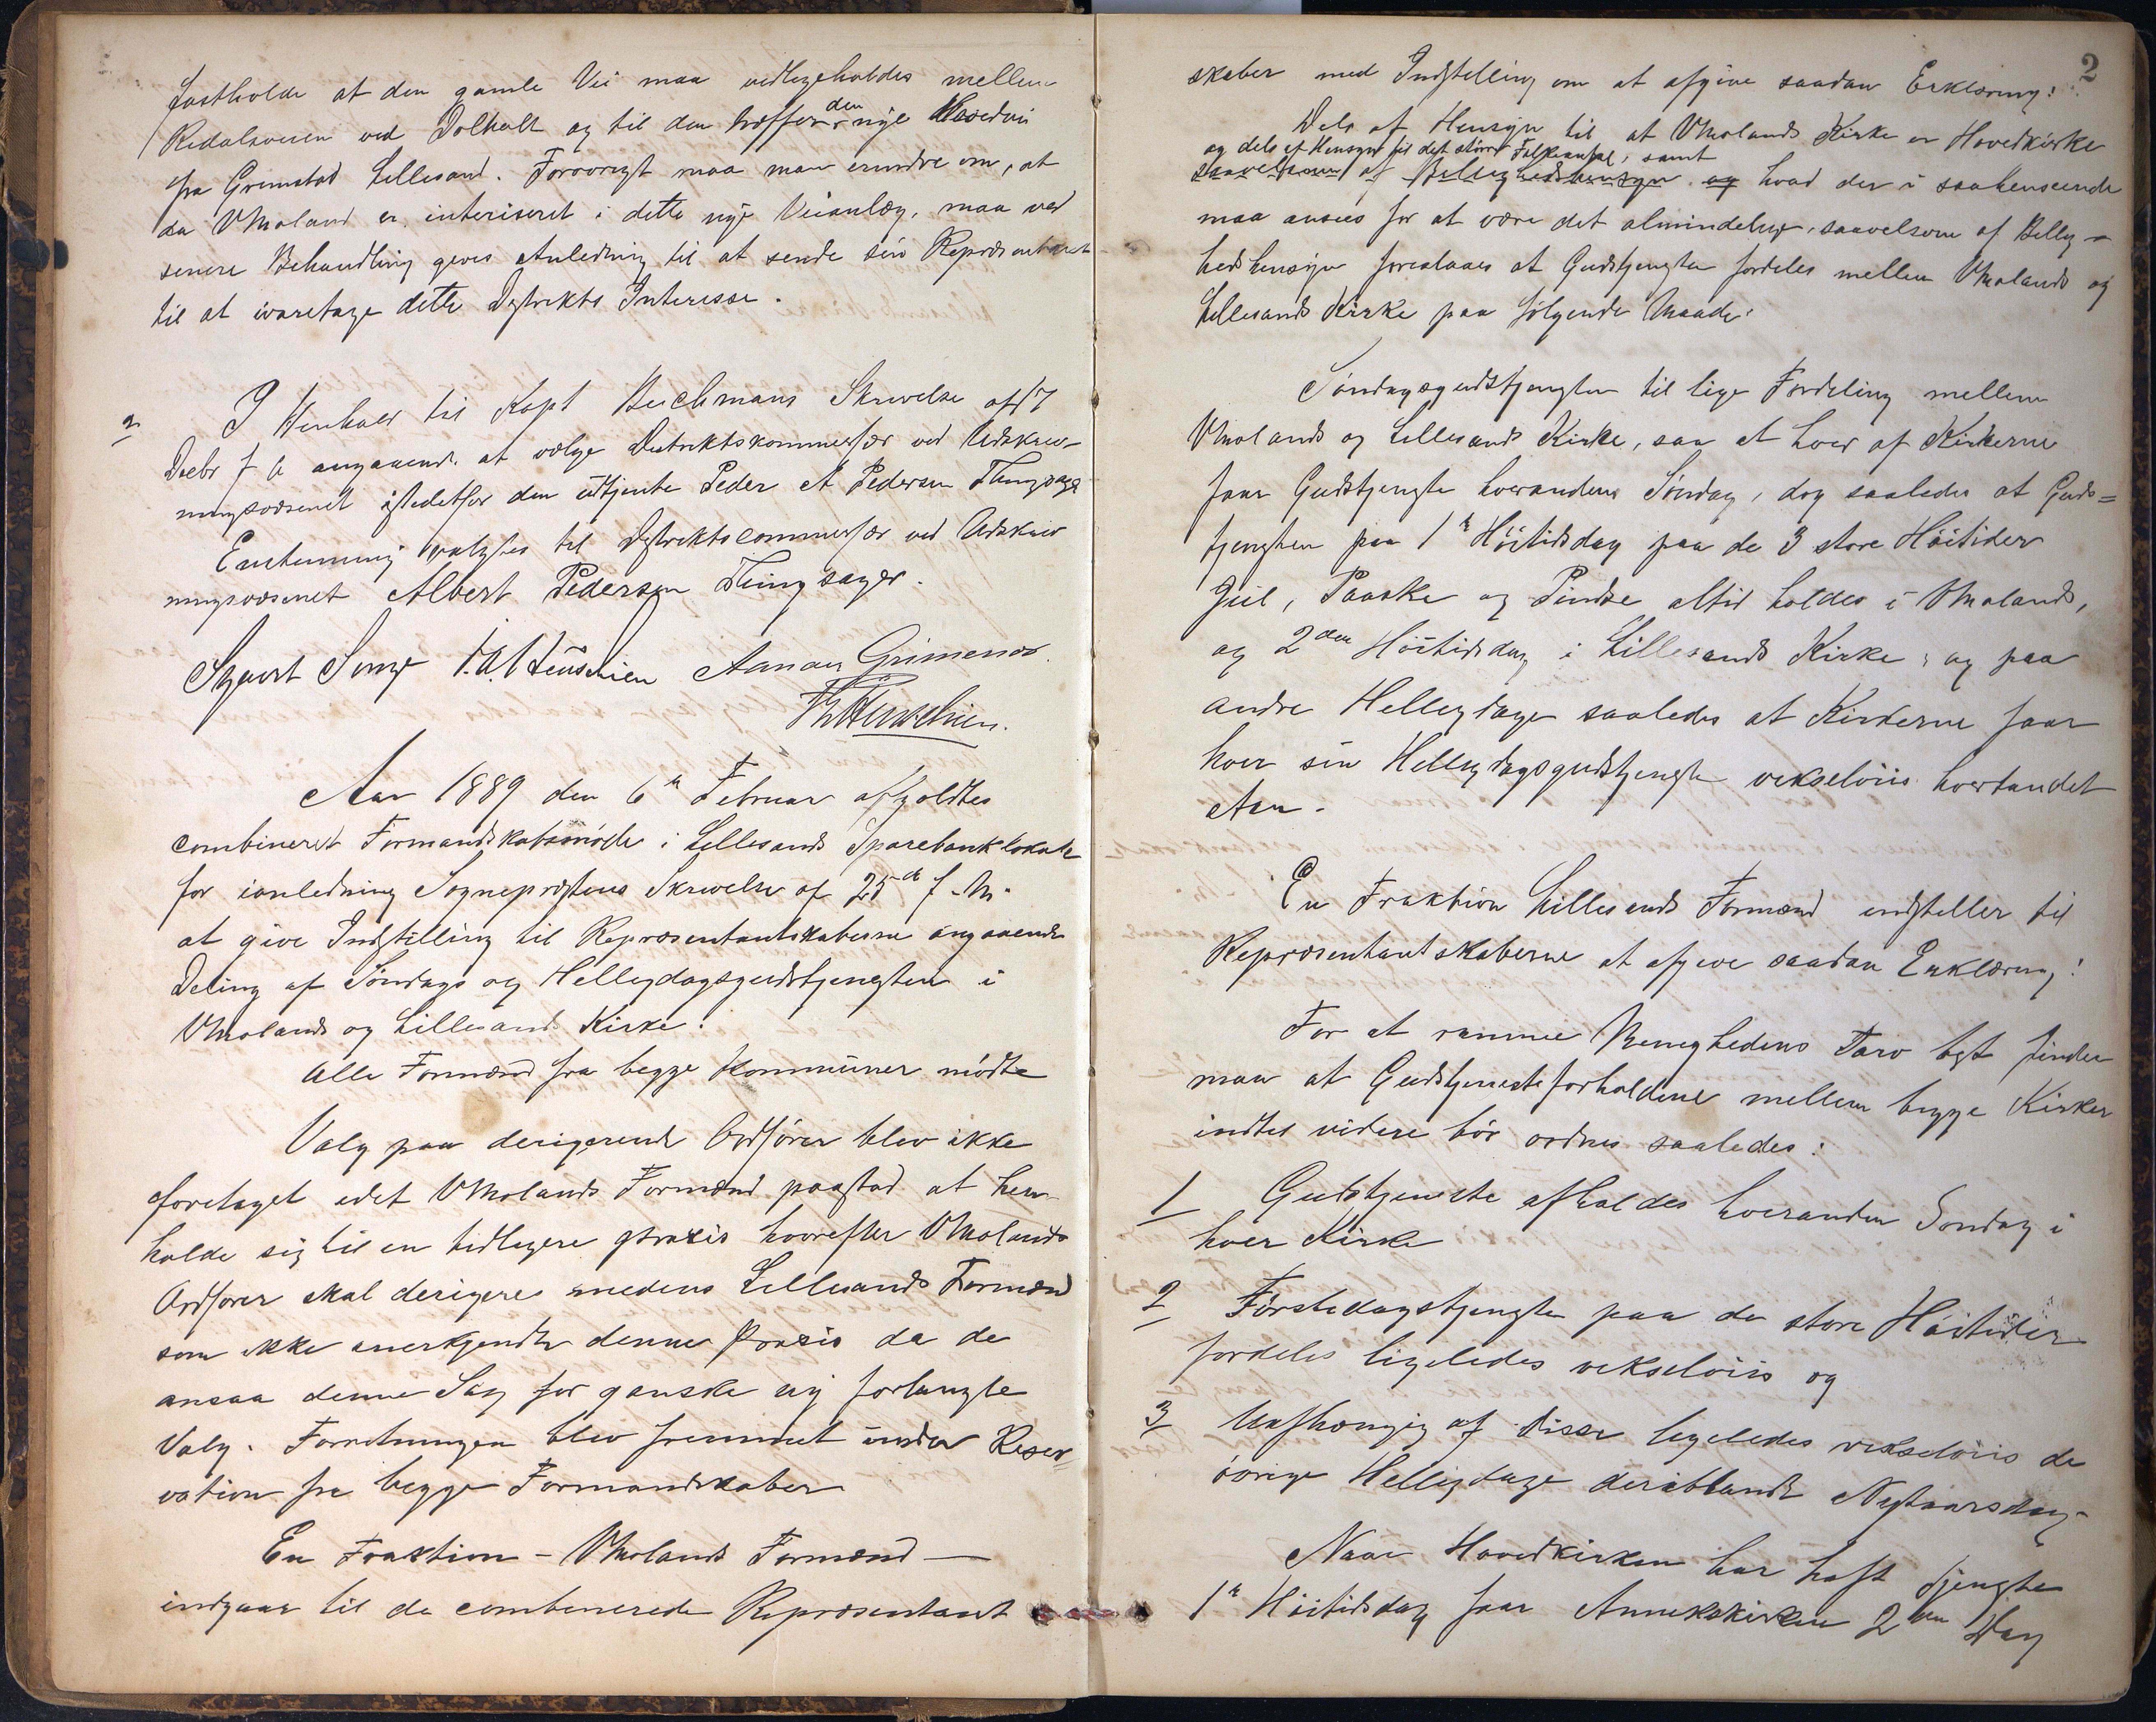 fastholde at den gamle Vei maa vedligeholdes mellem
Redalsveien ved Dolholt og til den træffer den nye Hovedvei
fra Grimstad Lillesand. Forøvrigt maa man erindre om, at
da VMoland er interiseret i dette nye Veianlæg, maa ved
senere Behandling gives Anledning til at sende sin Repræsentant
til at ivaretage dette Distrikts Interesse.
2 I Henhold til Kapt Beichmans Skrivelse af 17
Decbr f A angaaende at vælge Distriktskommissær ved Udskriv-
ningsvæsenet istedetfor den udtjente Peder A Pedersen Tingsager
Enstemmig valgtes til Distriktscommissær ved Udskriv
ningsvæsenet Albert Pedersen Tingsager.
Sygurt T.A. Heuschien Aanon Grimenæs
Aar 1889 den 6te Februar afholdtes
combineret Formandskabsmøde i Lillesands Sparebanklokale
for ianledning Sogneprestens Skrivelse af 25de f.M.
at give Indstilling til Repræsentantskaberne angaaende
Deling af Søndags og Helligdagsgudstjenesten i
VMolands og Lillesands Kirke.
Alle Formænd fra begge Kommuner mødte
Valg paa derigerende Ordfører blev ikke
foretaget idet VMolands Formænd paastod at hen-
holde sig til en tidligere praxis hvorefter VMolands
Ordfører skal derigere medens Lillesands Formænd
som ikke anerkjendte denne Praxis da de
ansaa denne Sag for ganske ny forlangte
Valg. Forretningen blev fremmet under Reser-
vation fra begge Formandskaber
En Fraktion - VMolands Formænd -
indgaar til de combinerede Repræsentant
2
skaber med Indstilling om at afgive saadan Erklæring:
Dels af Hensyn til at VMolands Kirke er Hovedkirke
og dels af Hensyn til det større Folkeantal, samt
saavelsom af Billighedshensyn og hvad der i saahenseende
maa ansees for at være det almindelige, saavelsom af Billig-
hedshensyn foreslaaes at Gudstjenesten fordeles mellem VMolands og
Lillesands Kirke paa følgende Maade:
Søndagsgudstjenesten til lige Fordeling mellem
VMolands og Lillesands Kirke, saa at hver af Kirkerne
faar Gudstjeneste hverandens Søndag, dog saaledes at Guds=
tjenesten paa 1ste Høitidsdag paa de 3 store Høitider
Jul, Paaske og Pindse altid holdes i VMolands,
og 2den Høitidsdag i Lillesands Kirke; og paa
andre Helligdage saaledes at Kirkerne faar
hver sin Helligdagsgudstjeneste vekselviis hvertandet
Aar.
En Fraktion Lillesands Formænd indstiller til
Repræsentantskaberne at afgive saadan Erklæring:
For at ramme Menighedens Tarv best finder
man at Gudstjenesteforholdene mellem begge Kirker
indtil videre bør ordnes saaledes:
1 Gudstjeneste afholdes hveranden Søndag i
hver Kirke
2 Førstedagstjeneste paa de store Høitider
fordeles ligeledes vekselviis og
3 Uafhængig af disse ligeledes vekselviis de
øvrige Helligdage deriblandt Nytaarsdag.
Naar Hovedkirken har haft Tjeneste
1ste Høitidsdag faar Annekskirken 2den Dag